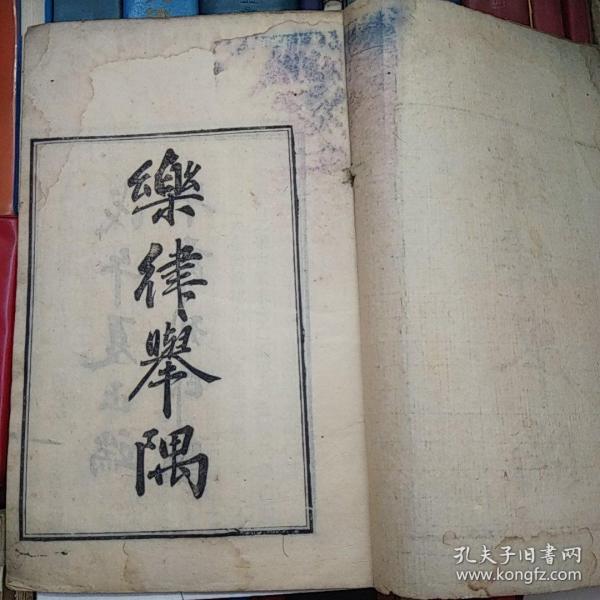 樂律舉隅
孔夫子旧书网
www.kongfz.com